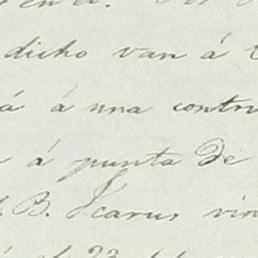 dicho van á
á á una contru
á punta de
B. Icarus vin